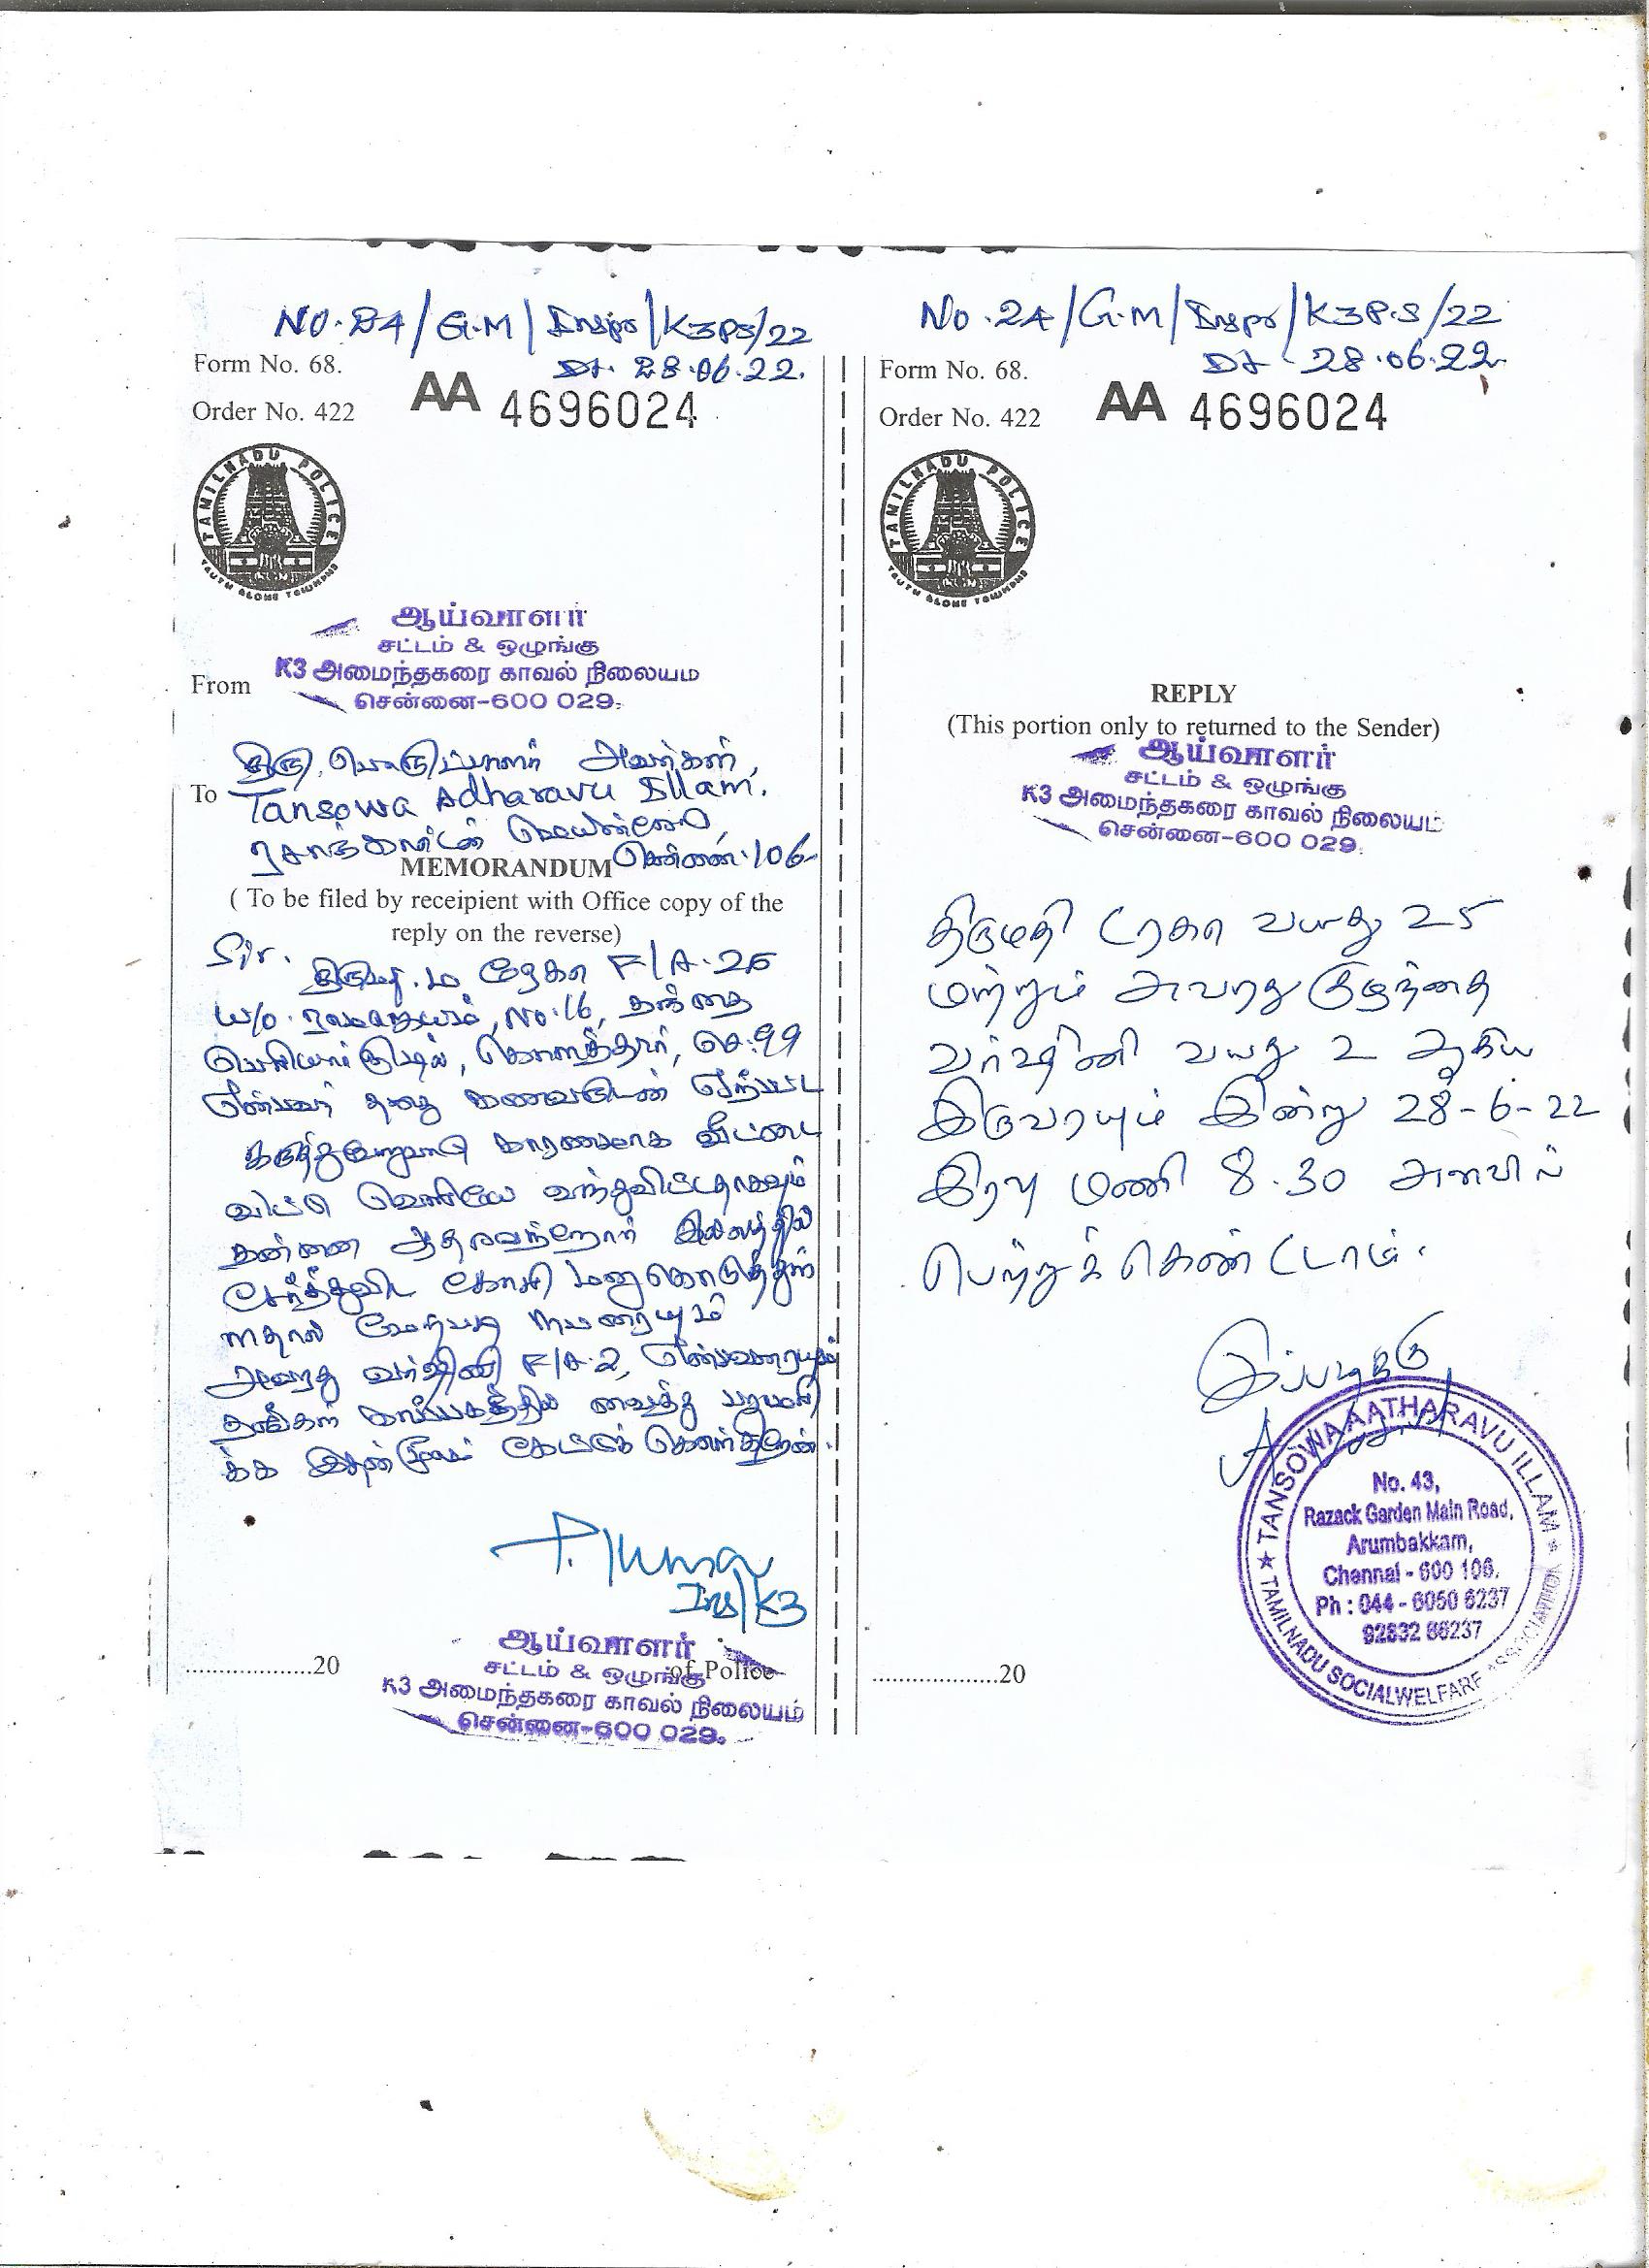 No. 24/G.M/Inspr/K3PS/22
Dt. 28.06.22.
Form No. 68.
Order No. 422
AA 4696024
TAMILNADU POLICE
TRUTH ALONE TRIUMPHS
ஆய்வாளர்
சட்டம் & ஒழுங்கு
K3 அமைந்தகரை காவல் நிலையம்
சென்னை-600 029.
From
திரு. பொறுப்பாளர் அவர்கள்,
To Tansowa Adharavu Illam.
சென்னை.106
MEMORANDUM
( To be filed by receipient with Office copy of the
reply on the reverse)
Sir.
ரேகா F/A.25
W/o. No.16, தந்தை
பெரியார் கொளத்தூர், செ.99
என்பவர் தனது கணவருடன் ஏற்பட்ட
கருத்துவேறுபாடு காரணமாக வீட்டை
விட்டு வெளியே வந்துவிட்டதாகவும்
தன்னை ஆதரவற்றோர் இல்லத்தில்
சேர்த்துவிட கோரி மனு கொடுத்துள்
ளதால் மேற்படி நபரையும்
அவரது வர்ஷினி F/A.2, என்பவரையும்
தங்கள் காப்பகத்தில் வைத்து பராமரி
க்க இதன் மூலம் கேட்டுக் கொள்கிறேன்.
Ins/K3
ஆய்வாளர்
சட்டம் & ஒழுங்கு
..................20 of Police
K3 அமைந்தகரை காவல் நிலையம்
சென்னை-600 029.
No. 24/G.M/Inspr/K3P.S/22
Dt - 28.06.22.
Form No. 68.
Order No. 422
AA 4696024
TAMILNADU POLICE
TRUTH ALONE TRIUMPHS
REPLY
(This portion only to returned to the Sender)
ஆய்வாளர்
சட்டம் & ஒழுங்கு
K3 அமைந்தகரை காவல் நிலையம்
சென்னை-600 029.
திருமதி ரேகா வயது 25
மற்றும் அவரது குழந்தை
வர்ஷினி வயது 2 ஆகிய
இருவரையும் இன்று 28-6-22
இரவு மணி 8.30 அளவில்
பெற்றுக்கொண்டோம்.
இப்படிக்கு
TANSOWA AATHARAVU ILLAM
No. 43,
Razack Garden Main Road,
Arumbakkam,
Chennai - 600 106.
Ph : 044 - 6050 6237
92832 86237
TAMILNADU SOCIALWELFARE ASSOCIATION
..................20